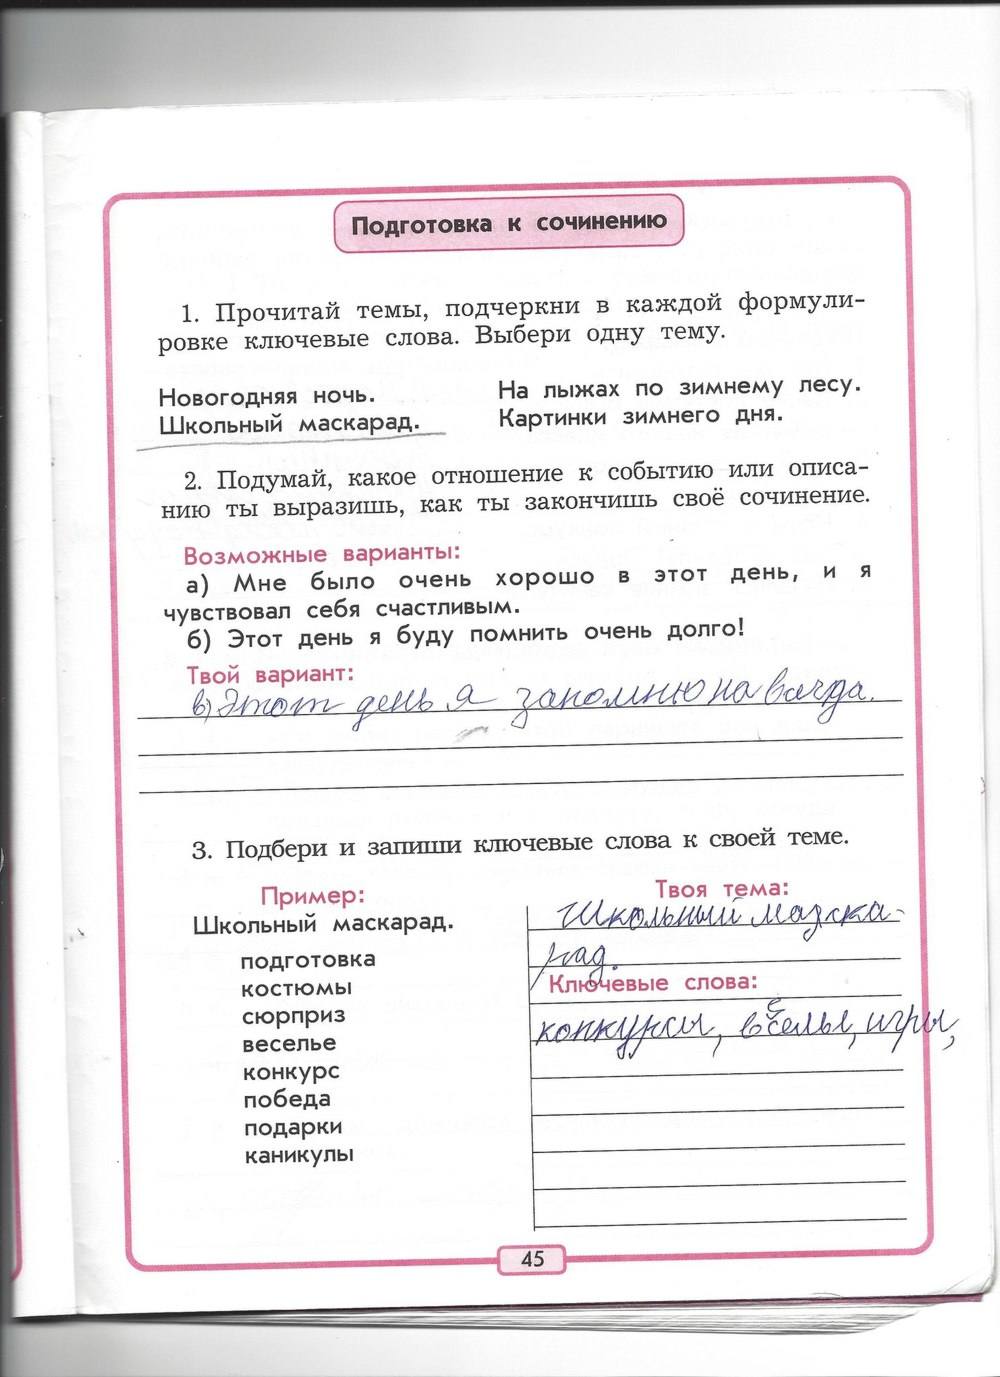 Подготовка к сочинению
1. Прочитай темы, подчеркни в каждой формули-
ровке ключевые слова. Выбери одну тему.
Новогодняя ночь.
Школьный маскарад.
На лыжах по зимнему лесу.
Картинки зимнего дня.
2. Подумай, какое отношение к событию или описа-
нию ты выразишь, как ты закончишь своё сочинение.
Возможные варианты:
а) Мне было очень хорошо в этот день, и я
чувствовал себя счастливым.
б) Этот день я буду помнить очень долго!
Твой вариант:
в) Этот день я запомню на
3. Подбери и запиши ключевые слова к своей теме.
Пример:
Школьный маскарад.
подготовка
костюмы
сюрприз
веселье
конкурс
победа
подарки
каникулы
Твоя тема:
Школьный
рад.
Ключевые слова:
конкурсы, игры,
45